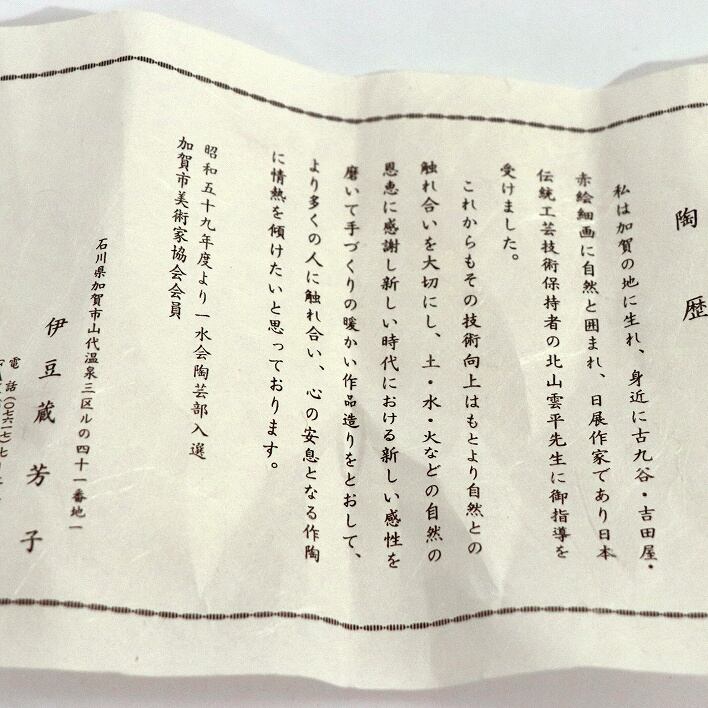 陶歴
私は加賀の地に生れ、身近に古九谷・吉田屋・
赤絵細画に自然と囲まれ、日展作家であり日本
伝統工芸技術保持者の北山雲平先生に御指導を
受けました。
これからもその技術向上はもとより自然との
触れ合いを大切にし、土・水・火などの自然の
恩恵に感謝し新しい時代における新しい感性を
磨いて手づくりの暖かい作品造りをとおして、
より多くの人に触れ合い、心の安息となる作陶
に情熱を傾けたいと思っております。
昭和五十九年度より一水会陶芸部入選
加賀市美術家協会会員
石川県加賀市山代温泉三区ルの四十一番地一
伊豆蔵芳子
電話(〇七六一七)七